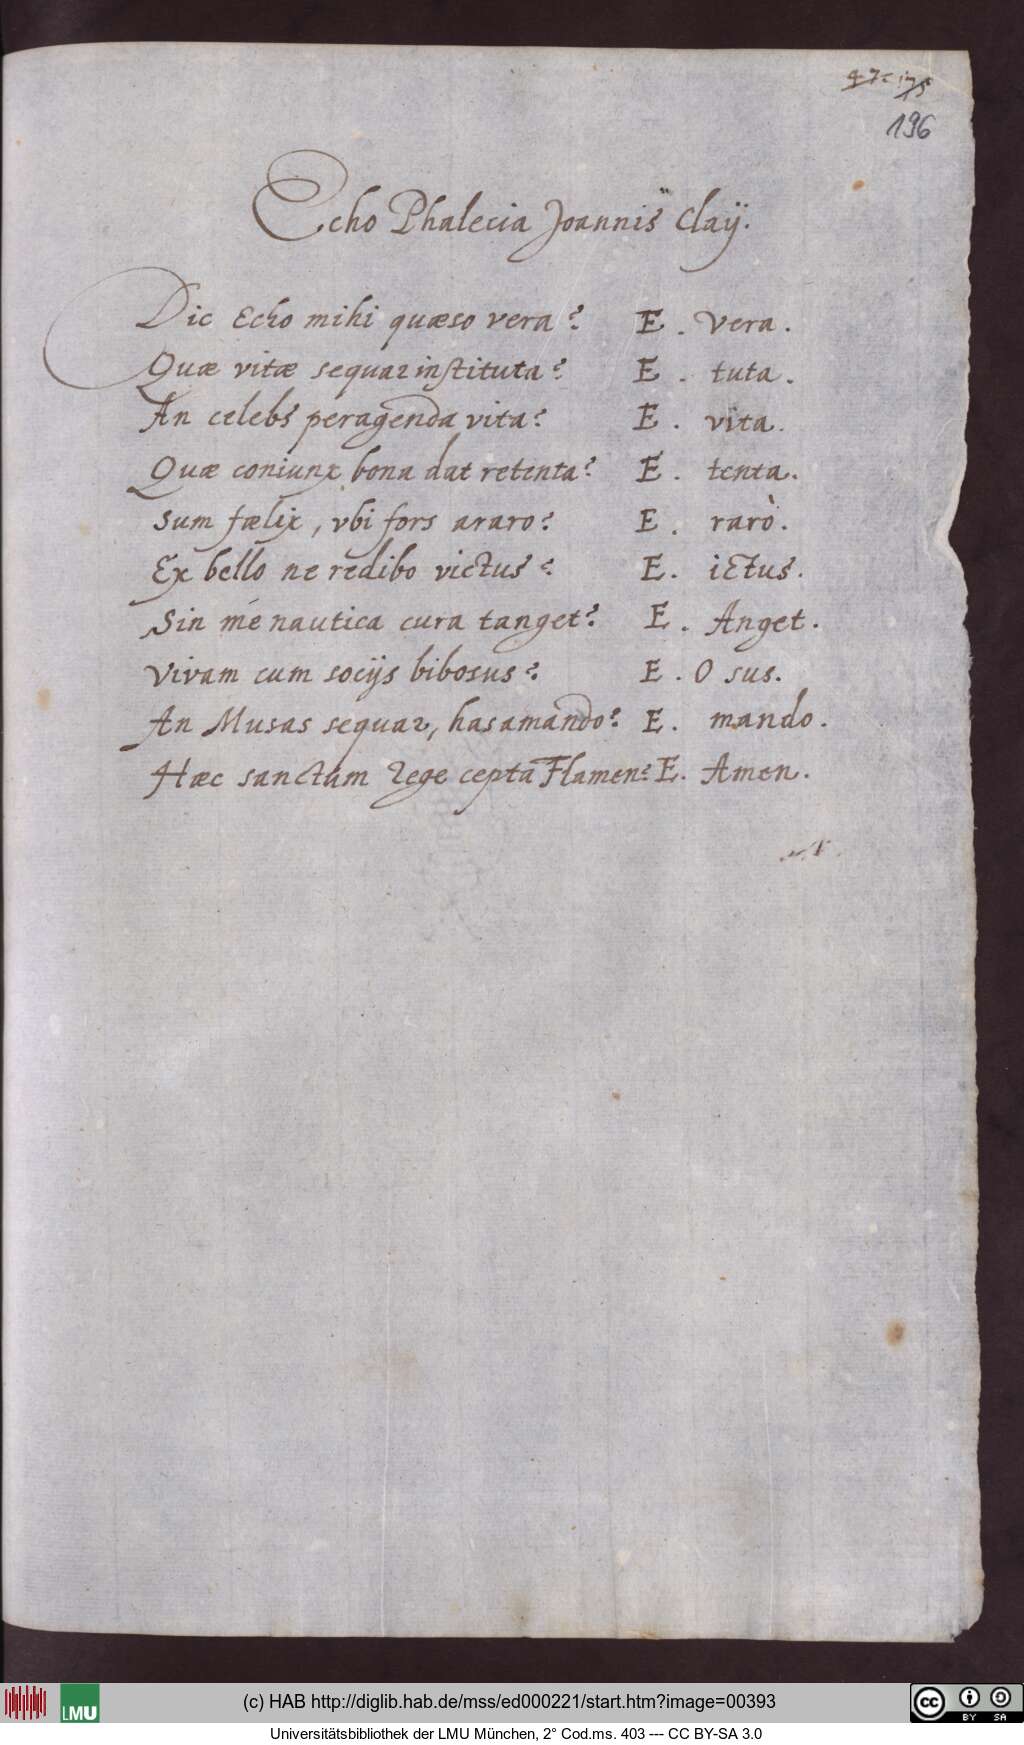 196
Echo Phalecia Joannis Claÿ.
Dic Echo mihi quæso vera? E. Vera.
Quæ vitæ sequar instituta? E. tuta.
An celebs peragenda vita? E. vita.
Quæ coniunx bona dat retenta? E. tenta.
Sum fælix, vbi fors araro? E. rarò.
Ex bello ne redibo victus? E. ictus.
Sin me nautica cura tanget? E. Anget.
Vivam cum socijs bibosus? E. O sus.
An Musas sequar, has amando? E. mando.
Hæc sanctum rege cepta Flamen? E. Amen.
LMU
(c) HAB http://diglib.hab.de/mss/ed000221/start.htm?image=00393
cc BY SA
Universitätsbibliothek der LMU München, 2° Cod.ms. 403 --- CC BY-SA 3.0